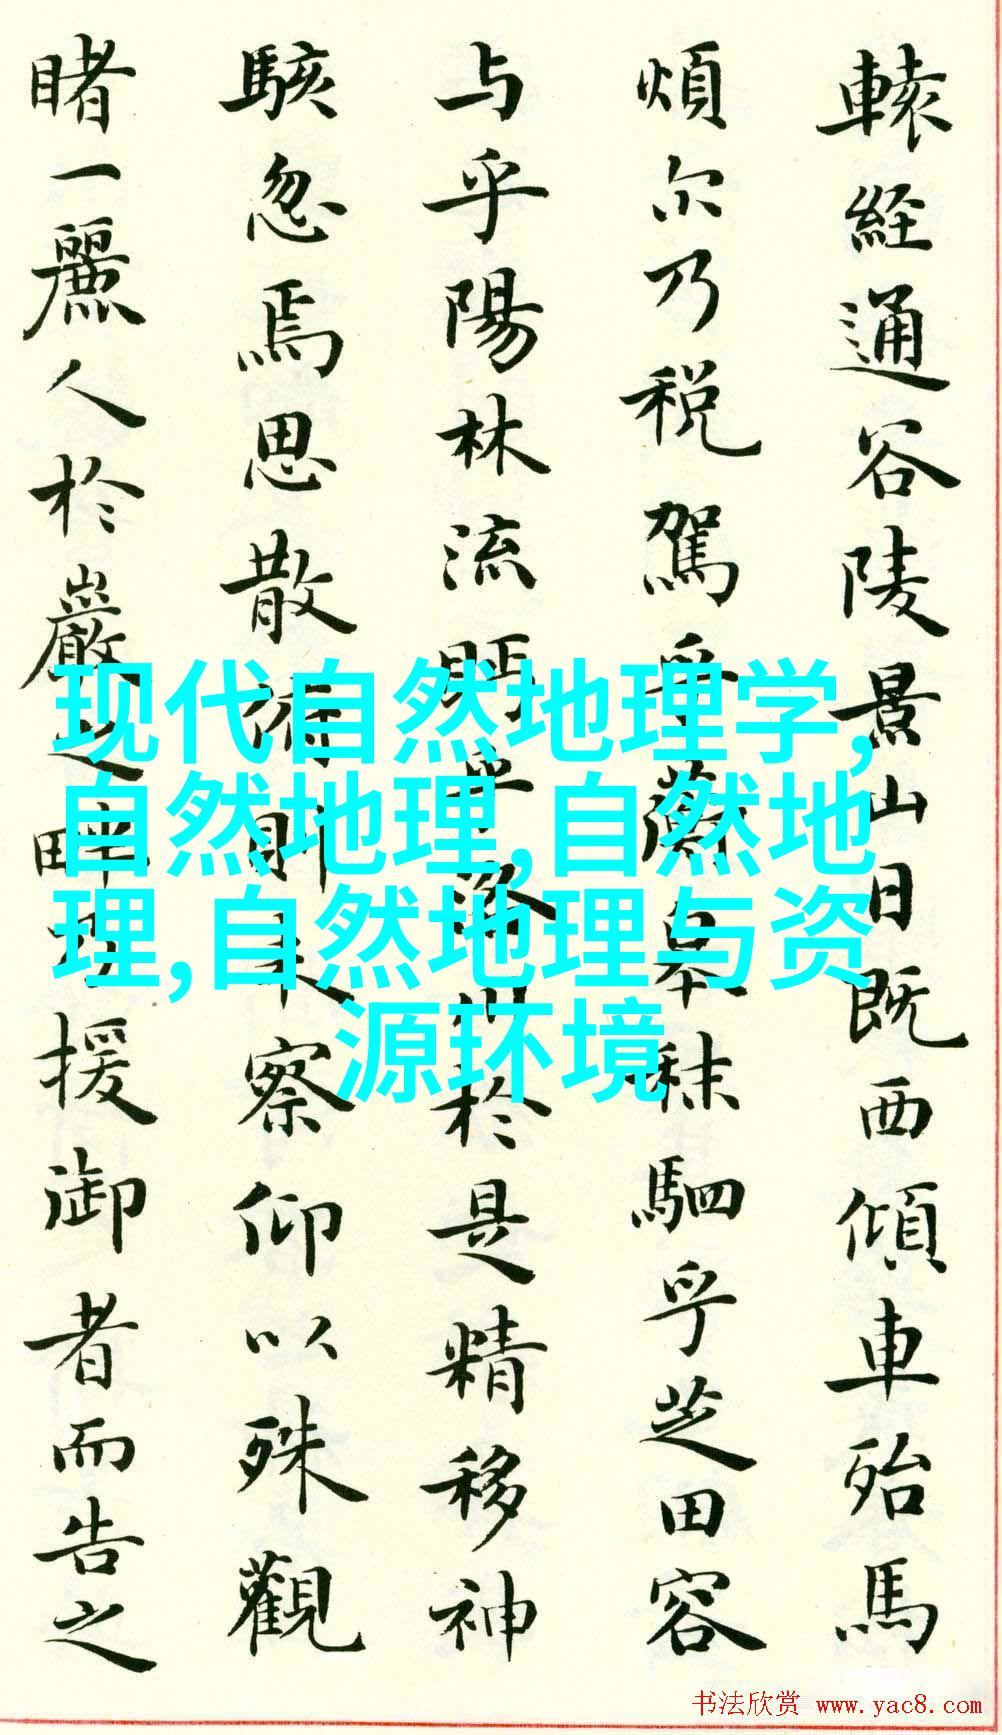 轅経通谷陵景山日既西傾車殆馬
煩尔乃税駕乎蘅皋秣駟乎芝田容
与乎陽林流眄乎洛川於是精移神
駭忽焉思散俯則未察仰以殊觀
睹一麗人於巖之畔乃援御者而告之
现代自然地理学,
自然地理,自然地
理,自然地理与资
源环境
书法欣赏 www.yac8.com